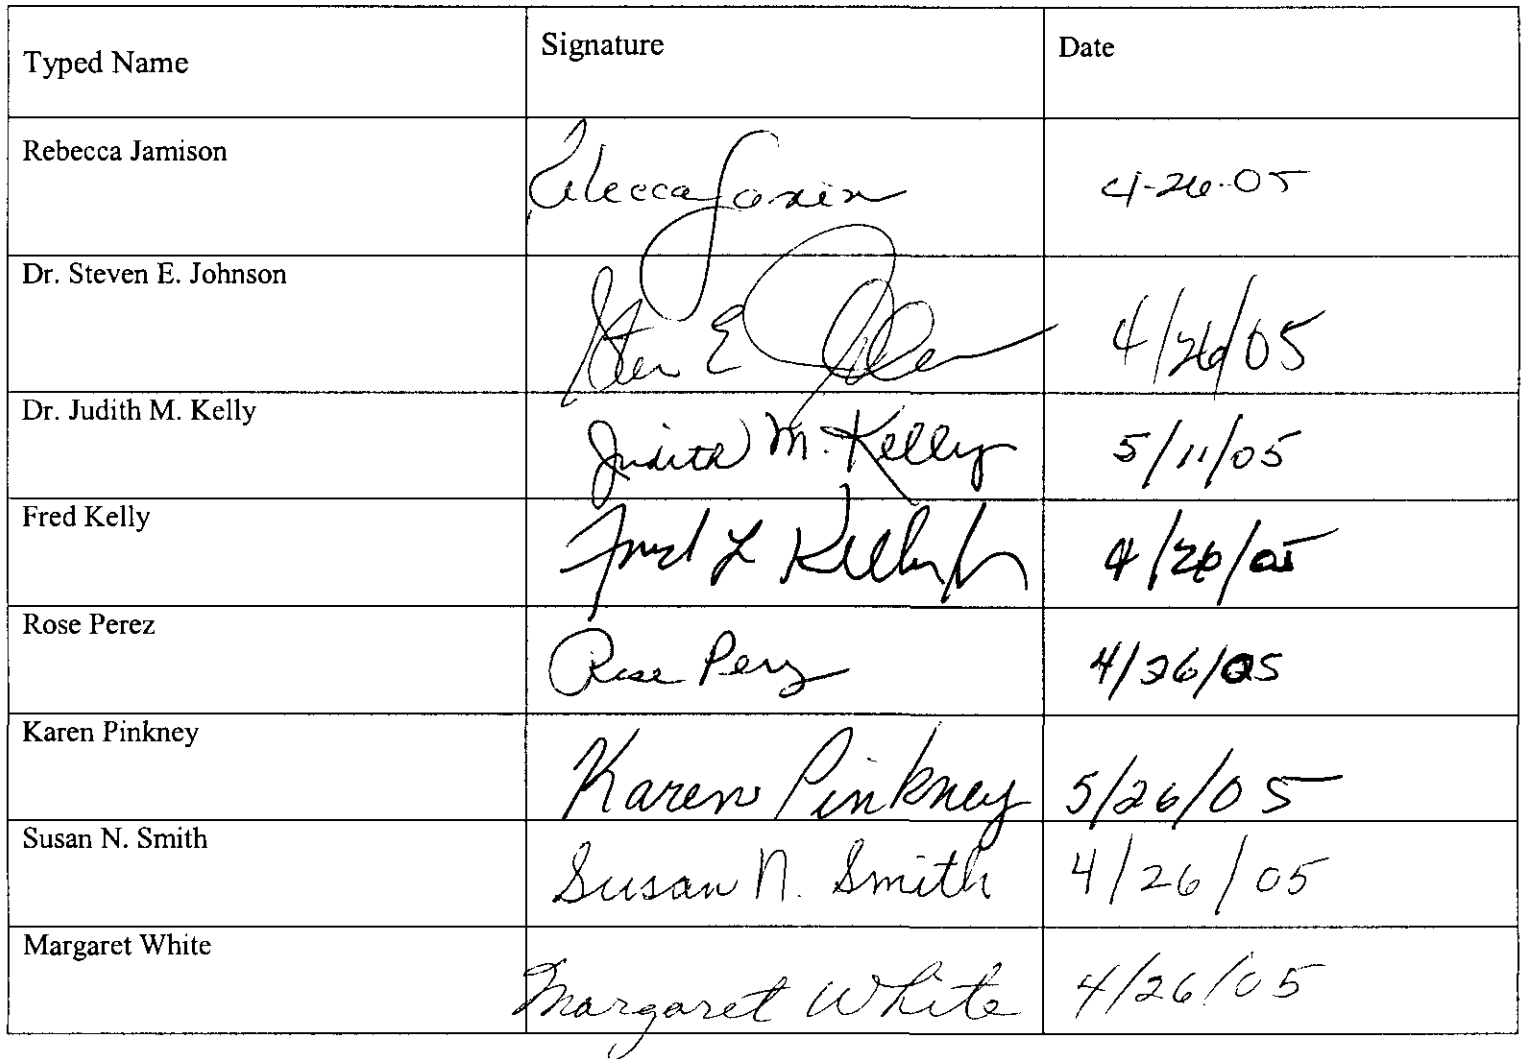 Typed Name Signature Date
Rebecca Jamison Rebecca Jamison 4-26-05
Dr. Steven E. Johnson Steven E Johnson 4/26/05
Dr. Judith M. Kelly Judith M. Kelly 5/11/05
Fred Kelly Fred L Kelly Jr 4/26/05
Rose Perez Rose Perez 4/26/05
Karen Pinkney Karen Pinkney 5/26/05
Susan N. Smith Susan N. Smith 4/26/05
Margaret White Margaret White 4/26/05